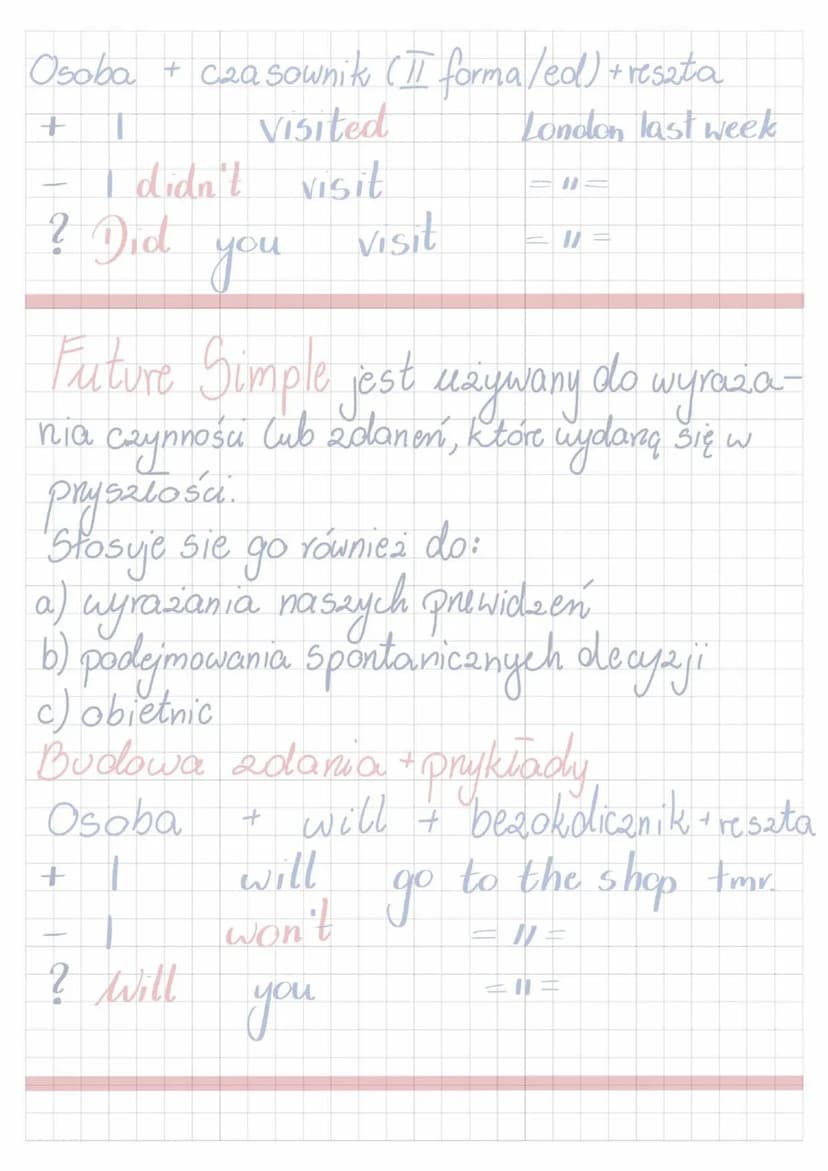 Osoba + czasownik (II forma/ed) + reszta
+ I visited London last week
- I didn't visit =〃=
? Did you visit =〃=
Future Simple jest używany do wyraża-
nia czynności lub zdarzeń, które wydarzą się w
przyszłości.
Stosuje sie go również do:
a) wyrażania naszych przewidzeń
b) podejmowania spontanicznych decyzji
c) obietnic
Budowa zdania + przykłady
Osoba + will + bezokolicznik + reszta
+ I will go to the shop tmr.
- I won't =〃=
? Will you =〃=